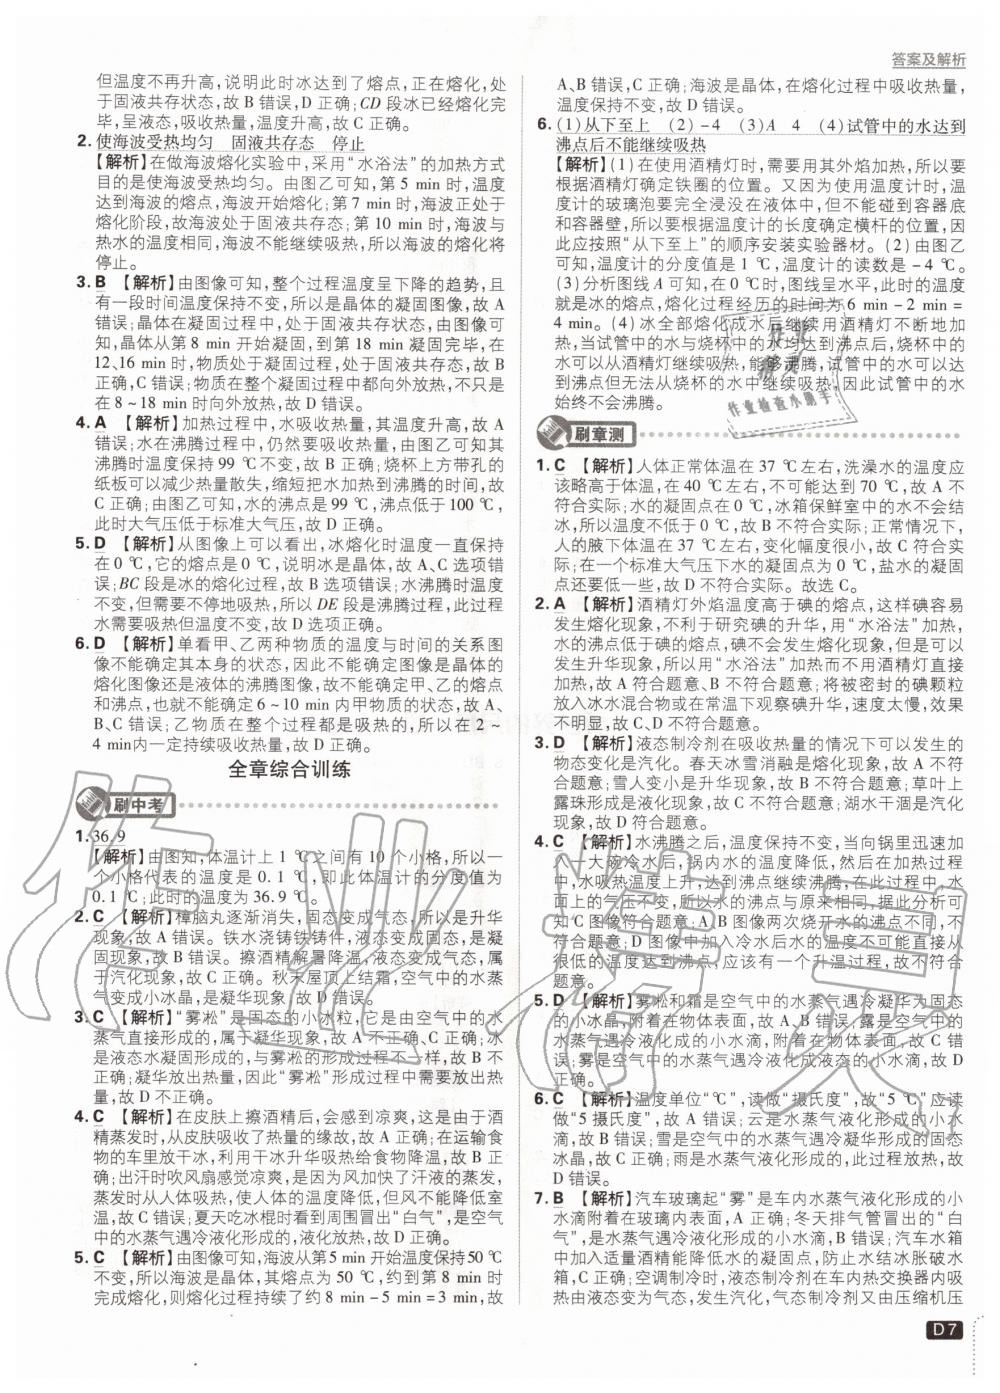 答案及解析
但温度不再升高，说明此时冰达到了熔点，正在熔化，处
于固液共存状态，故 B 错误，D 正确；CD 段冰已经熔化完
毕，呈液态，吸收热量，温度升高，故 C 正确。
2. 使海波受热均匀　固液共存态　停止
【解析】在做海波熔化实验中，采用“水浴法”的加热方式
目的是使海波受热均匀。由图乙可知，第 5 min 时，温度
达到海波的熔点，海波开始熔化；第 7 min 时，海波正处于
熔化阶段，故海波处于固液共存态；第 10 min 时，海波与
热水的温度相同，海波不能继续吸热，所以海波的熔化将
停止。
3. B 【解析】由图像可知，整个过程温度呈下降的趋势，且
有一段时间温度保持不变，所以是晶体的凝固图像，故 A
错误；晶体在凝固过程中，处于固液共存态，由图像可
知，晶体从第 8 min 开始凝固，到第 18 min 凝固完毕，在
12、16 min 时，物质处于凝固过程，处于固液共存态，故 B
正确，C 错误；物质在整个凝固过程中都向外放热，不只是
在 8～18 min 时向外放热，故 D 错误。
4. A 【解析】加热过程中，水吸收热量，其温度升高，故 A
错误；水在沸腾过程中，仍然要吸收热量，由图乙可知，水
沸腾时温度保持 99 ℃不变，故 B 正确；烧杯上方带孔的
纸板可以减少热量散失，缩短把水加热到沸腾的时间，故
C 正确；由图乙可知，水的沸点是 99 ℃，沸点低于 100 ℃，
此时大气压低于标准大气压，故 D 正确。
5. D 【解析】从图像上可以看出，冰熔化时温度一直保持
在 0 ℃，它的熔点是 0 ℃，说明冰是晶体，故 A、C 选项错
误；BC 段是冰的熔化过程，故 B 选项错误；水沸腾时温度
不变，但需要不停地吸热，所以 DE 段是沸腾过程，此过程
水需要吸热但温度不变，故 D 选项正确。
6. D 【解析】单看甲、乙两种物质的温度与时间的关系图
像不能确定其本身的状态，因此不能确定图像是晶体的
熔化图像还是液体的沸腾图像，故不能确定甲、乙的熔点
和沸点，也就不能确定 6～10 min 内甲物质的状态，故 A、
B、C 错误；乙物质在整个过程都是吸热的，所以在 2～
4 min内一定持续吸收热量，故 D 正确。
全章综合训练
刷中考
1. 36.9
【解析】由图知，体温计上 1 ℃之间有 10 个小格，所以一
个小格代表的温度是 0.1 ℃，即此体温计的分度值为
0.1 ℃；此时的温度为 36.9 ℃。
2. C 【解析】樟脑丸逐渐消失，固态变成气态，所以是升华
现象，故 A 错误。铁水浇铸铁铸件，液态变成固态，是凝
固现象，故 B 错误。擦酒精解暑降温，液态变成气态，属
于汽化现象，故 C 正确。秋末屋顶上结霜，空气中的水蒸
气变成小冰晶，是凝华现象，故 D 错误。
3. C 【解析】“雾凇”是固态的小冰粒，它是由空气中的水
蒸气直接形成的，属于凝华现象，故 A 不正确、C 正确；冰
是液态水凝固形成的，与雾凇的形成过程不一样，故 B 不
正确；凝华放出热量，因此“雾凇”形成过程中需要放出热
量，故 D 不正确。
4. C 【解析】在皮肤上擦酒精后，会感到凉爽，这是由于酒
精蒸发时，从皮肤吸收了热量的缘故，故 A 正确；在运输食
物的车里放干冰，利用干冰升华吸热给食物降温，故 B 正
确；出汗时吹风扇感觉凉爽，是因为风加快了汗液的蒸发，
蒸发时从人体吸热，使人体的温度降低，但风不能降低室
温，故 C 错误；夏天吃冰棍时看到周围冒出“白气”，是空气
中的水蒸气遇冷液化形成的，液化放热，故 D 正确。
5. C 【解析】由图像可知，海波从第5 min 开始温度保持50 ℃
不变，所以海波是晶体，其熔点为 50 ℃，约到第 8 min 时
完成熔化，则熔化过程持续了约 8 min－5 min＝3 min，故
A、B 错误，C 正确；海波是晶体，在熔化过程中吸收热量，
温度保持不变，故 D 错误。
6. (1)从下至上　(2)－4　(3)A　4　(4)试管中的水达到
沸点后不能继续吸热
【解析】(1)在使用酒精灯时，需要用其外焰加热，所以要
根据酒精灯确定铁圈的位置。又因为使用温度计时，温
度计的玻璃泡要完全浸没在液体中，但不能碰到容器底
和容器壁，所以要根据温度计的长度确定横杆的位置，因
此应按照“从下至上”的顺序安装实验器材。(2)由图乙
可知，温度计的分度值是 1 ℃，温度计的读数是－4 ℃。
(3)分析图线 A 可知，在 0 ℃时，图线呈水平，此时的温度
就是冰的熔点，熔化过程经历的时间为 6 min－2 min＝
4 min。(4)冰全部熔化成水后继续用酒精灯不断地加
热，当试管中的水与烧杯中的水均达到沸点后，烧杯中的
水可以从酒精灯继续吸热，能够沸腾，试管中的水可以达
到沸点但无法从烧杯的水中继续吸热，因此试管中的水
始终不会沸腾。
刷章测
1. C 【解析】人体正常体温在 37 ℃左右，洗澡水的温度应
该略高于体温，在 40 ℃左右，不可能达到 70 ℃，故 A 不
符合实际；水的凝固点在 0 ℃，冰箱保鲜室中的水不会结
冰，所以温度不低于 0 ℃，故 B 不符合实际；正常情况下，
人的腋下体温在 37 ℃左右，变化幅度很小，故 C 符合实
际；在一个标准大气压下水的凝固点为 0 ℃，盐水的凝固
点还要更低一些，故 D 不符合实际。故选 C。
2. A 【解析】酒精灯外焰温度高于碘的熔点，这样碘容易
发生熔化现象，不利于研究碘的升华，用“水浴法”加热，
水的沸点低于碘的熔点，碘不会发生熔化现象，但可以发
生升华现象，所以用“水浴法”加热而不用酒精灯直接
加热，故 A 符合题意，B 不符合题意；将被密封的碘颗粒
放入冰水混合物或在常温下观察碘升华，速度太慢，效果
不明显，故 C、D 不符合题意。
3. D 【解析】液态制冷剂在吸收热量的情况下可以发生的
物态变化是汽化。春天冰雪消融是熔化现象，故 A 不符
合题意；雪人变小是升华现象，故 B 不符合题意；草叶上
露珠形成是液化现象，故 C 不符合题意；湖水干涸是汽化
现象，故 D 符合题意。
4. C 【解析】水沸腾之后，温度保持不变，当向锅里迅速加
入一大碗冷水后，锅内水的温度降低，然后在加热过程
中，水吸热温度上升，达到沸点继续沸腾，在这个过程中，水
面上的气压不变，所以水的沸点与原来相同，据此分析可
知 C 图像符合题意；A、B 图像两次烧开水的沸点不同，不
符合题意；D 图像中加入冷水后水的温度不可能直接从
很低的温度达到沸点，应该有一个升温过程，故不符合
题意。
5. D 【解析】雾凇和霜是空气中的水蒸气遇冷凝华为固态
的小冰晶，附着在物体表面，故 A、B 错误；露是空气中的
水蒸气遇冷液化成的小水滴，附着在物体表面，故 C 错
误；雾是空气中的水蒸气遇冷液化成液态的小水滴，故 D
正确。
6. C 【解析】温度单位“℃”，读做“摄氏度”，故“5 ℃”应读
做“5 摄氏度”，故 A 错误；云是水蒸气液化形成的小水
滴，故 B 错误；雪是空气中的水蒸气遇冷凝华形成的固态
冰晶，故 C 正确；雨是水蒸气液化形成的，此过程放热，故
D 错误。
7. B 【解析】汽车玻璃起“雾”是车内水蒸气液化形成的小
水滴附着在玻璃内表面，A 正确；冬天排气管冒出的“白
气”，是水蒸气遇冷液化形成的小水滴，故 B 错误；汽车水箱
中加入适量酒精能降低水的凝固点，防止水结冰胀破水
箱，C 正确；空调制冷时，液态制冷剂在车内热交换器内吸
热由液态变为气态，发生汽化，气态制冷剂又由压缩机压
D7
作业精灵
作业
精灵
作业检查小助手